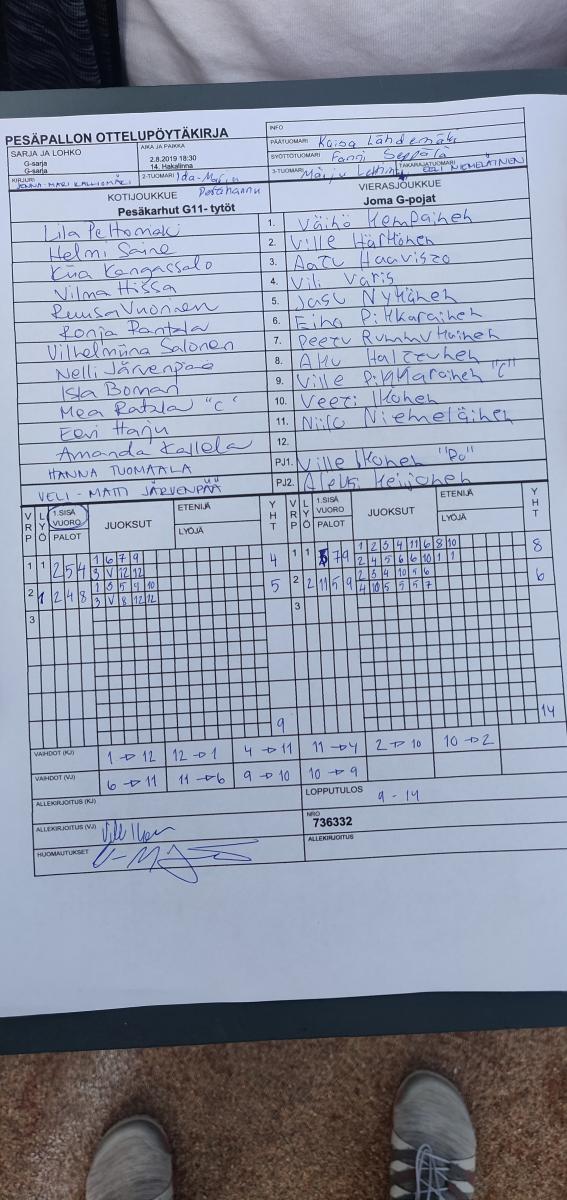 PESÄPALLON OTTELUPÖYTÄKIRJA
INFO
SARJA JA LOHKO
G-sarja
G-sarja
AIKA JA PAIKKA
2.8.2019 18:30
14. Hakalinna
PÄÄTUOMARI Kaisa Lähdemäki
SYÖTTÖTUOMARI Fanni Seppälä
KIRJURI
2-TUOMARI Ida-Mari
3-TUOMARI
TAKARAJATUOMARI EELI NIEMELÄINEN
KOTIJOUKKUE
Pesäkarhut G11- tytöt
VIERASJOUKKUE
Joma G-pojat
Lila Peltomäki 1. Väinö Kemppainen
Helmi Saine 2. Ville Härkönen
Kiia Kangassalo 3. Aatu Haavisto
Vilma Hissa 4. Vili Varis
Ruusa Vuorinen 5. Jasu Nykänen
Ronja Rantala 6. Eino Pikkarainen
Vilhelmiina Salonen 7. Peetu Rummukainen
Nelli Järvenpää 8. Aku
Isla Boman 9. Ville Pikkarainen "C"
Mea Ratala "C" 10. Veeti Ikonen
Eevi Harju 11. Niilo Niemeläinen
Amanda Kallela 12.
HANNA TUOMAALA PJ1. Ville Ikonen "Po"
VELI-MATTI JÄRVENPÄÄ PJ2. Keijonen
VRP LYÖ 1.SISÄ VUORO PALOT JUOKSUT ETENIJÄ LYÖJÄ YHT VRP LYÖ 1.SISÄ VUORO PALOT JUOKSUT ETENIJÄ LYÖJÄ YHT
1 1 2 5 4 1 6 7 9 4 1 1 7 9 1 2 3 4 11 6 8 10 8
3 V 12 12 2 4 5 6 6 10 1 1
2 1 2 4 8 1 3 5 9 10 5 2 2 11 5 9 2 3 4 10 5 6 6
3 V 8 12 12 4 10 5 5 5 7
3 3
9 14
VAIHDOT (KJ) 1 → 12 12 → 1 4 → 11 11 → 4 2 → 10 10 → 2
VAIHDOT (VJ) 6 → 11 11 → 6 9 → 10 10 → 9
ALLEKIRJOITUS (KJ)
LOPPUTULOS 9 - 14
ALLEKIRJOITUS (VJ)
NRO
736332
HUOMAUTUKSET
ALLEKIRJOITUS